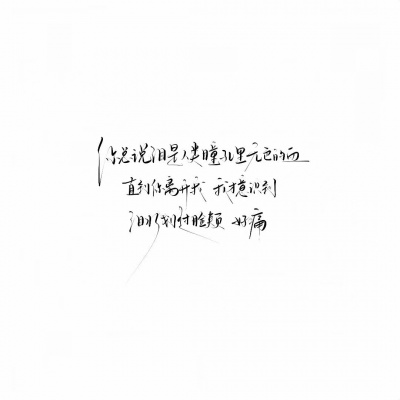 你总说泪是人类瞳孔里无色的血
直到你离开我 我才意识到
泪水划过脸颊 好痛